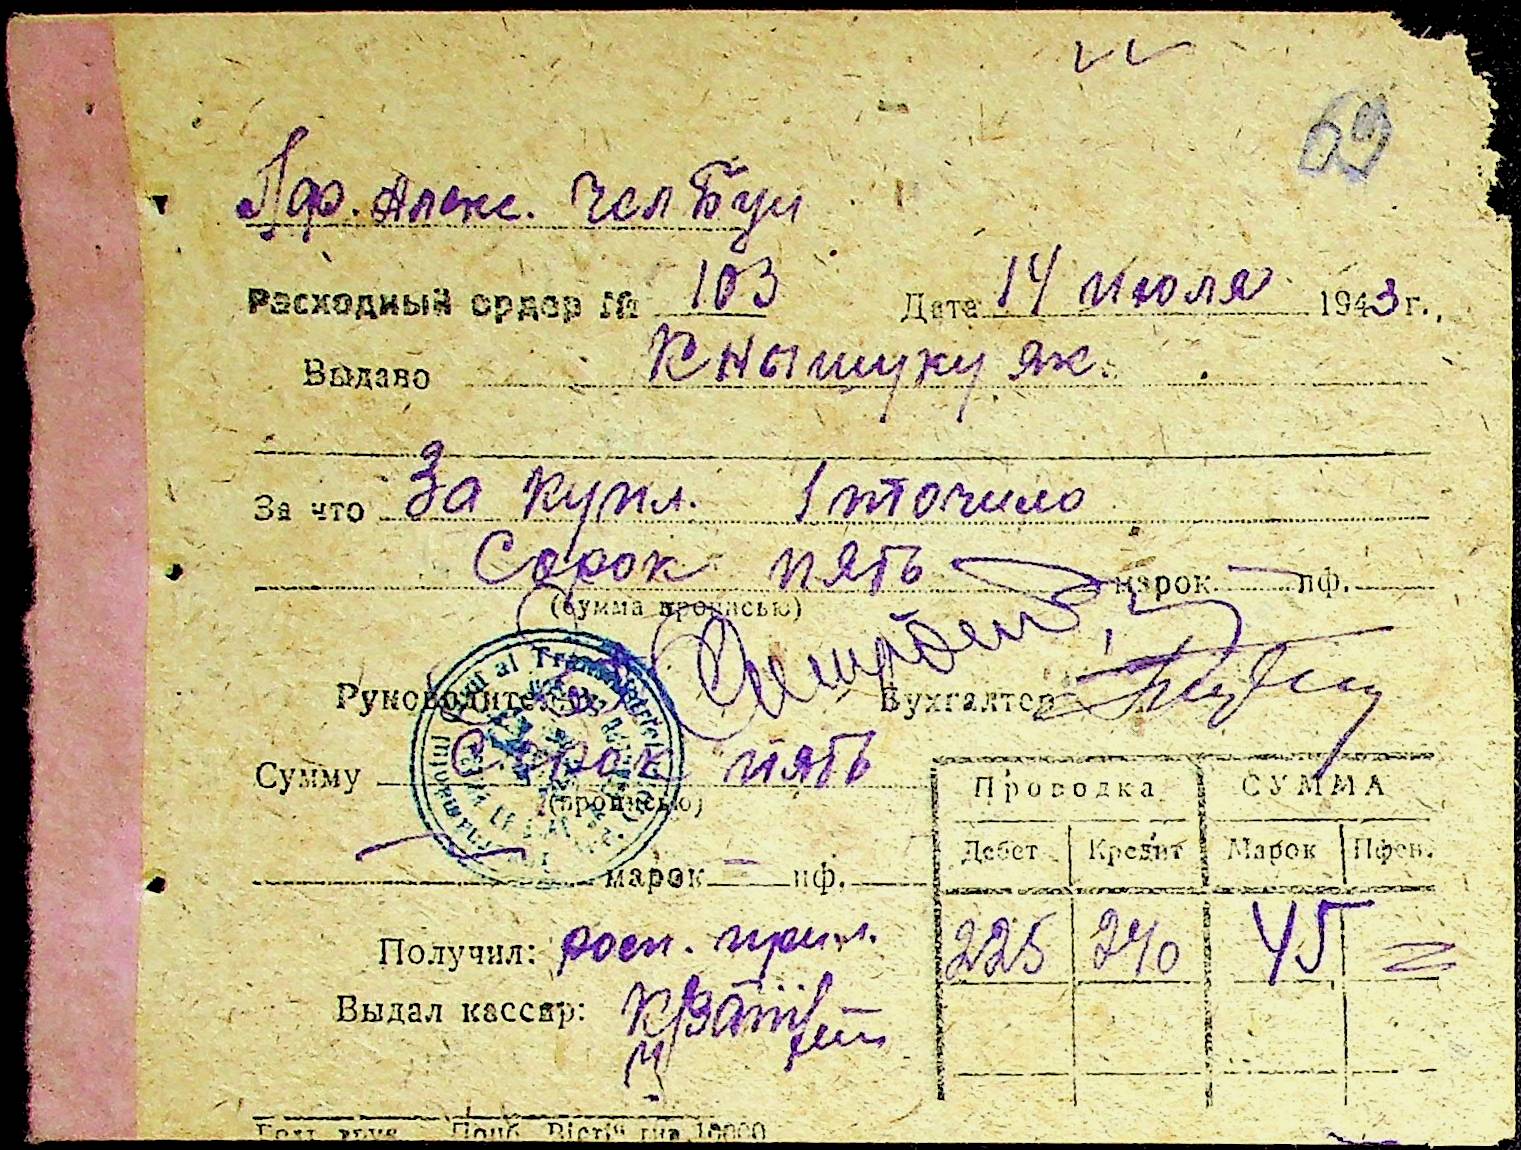 69
Пф. Алекс. Челбул
Расходный ордер № 103 Дата 14 июля 1943 г.,
Выдано Кнышуку Як.
За что За купл. 1 точило
Сорок пять марок — пф.
(сумма прописью)
Руководитель Бухгалтер
Сумму Сорок пять
(прописью)
марок = пф.
Проводка СУММА
Дебет Кредит Марок Пфен.
225 240 45 =
Получил: росп. прил.
Выдал кассир:
10000